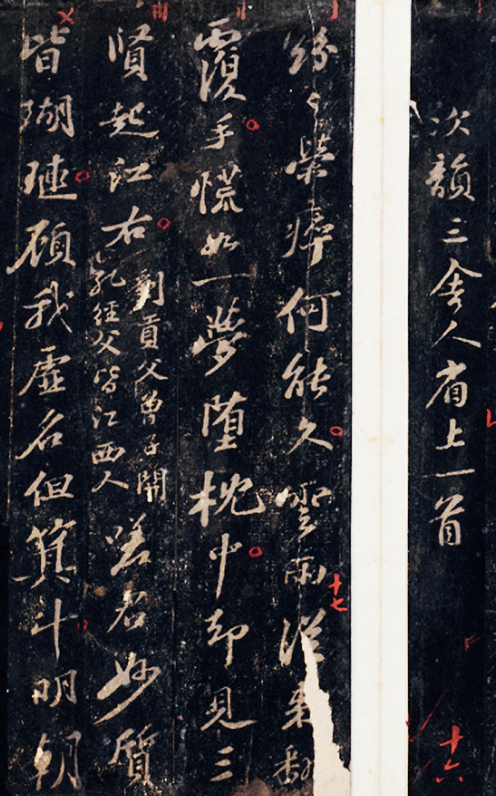 次韻三舍人省上一首
十六
紛〻榮瘁何能久雲雨從來翻
十七
覆手慌如一夢墮枕中却見三
賢起江右
劉貢父曾子開
孔經父皆江西人
嗟君妙質
皆瑚璉顧我虛名但箕斗明朝